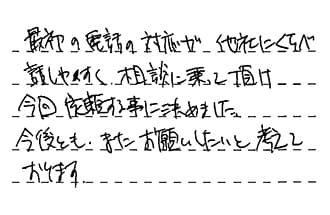 最初の電話の対応が 他社にくらべ
話しやすく 相談に乗って頂け
今回 依頼する事に決めました。
今後とも、またお願いしたいと考えて
おります。